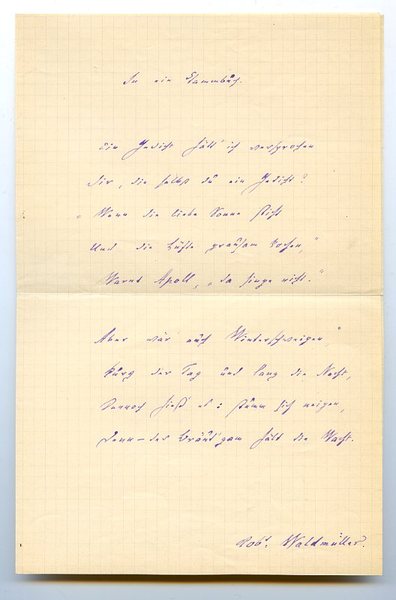 In ein Stammbuch.
Ein Gedicht hätt' ich versprochen
Dir, die selbst du ein Gedicht?
„Wenn die liebe Sonne sticht
Und die Lüfte grausam kochen,“
Warnt Apoll, „da singe nicht.“
Aber wär' auch Winterschweigen,
Kurz der Tag und lang die Nacht,
Dennoch hieß es: stumm sich neigen,
Denn – der Bräut'gam hält die Wacht.
Rob. Waldmüller.